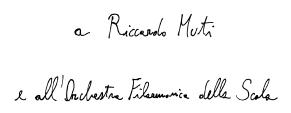 a Riccardo Muti
e all'Orchestra Filarmonica della Scala